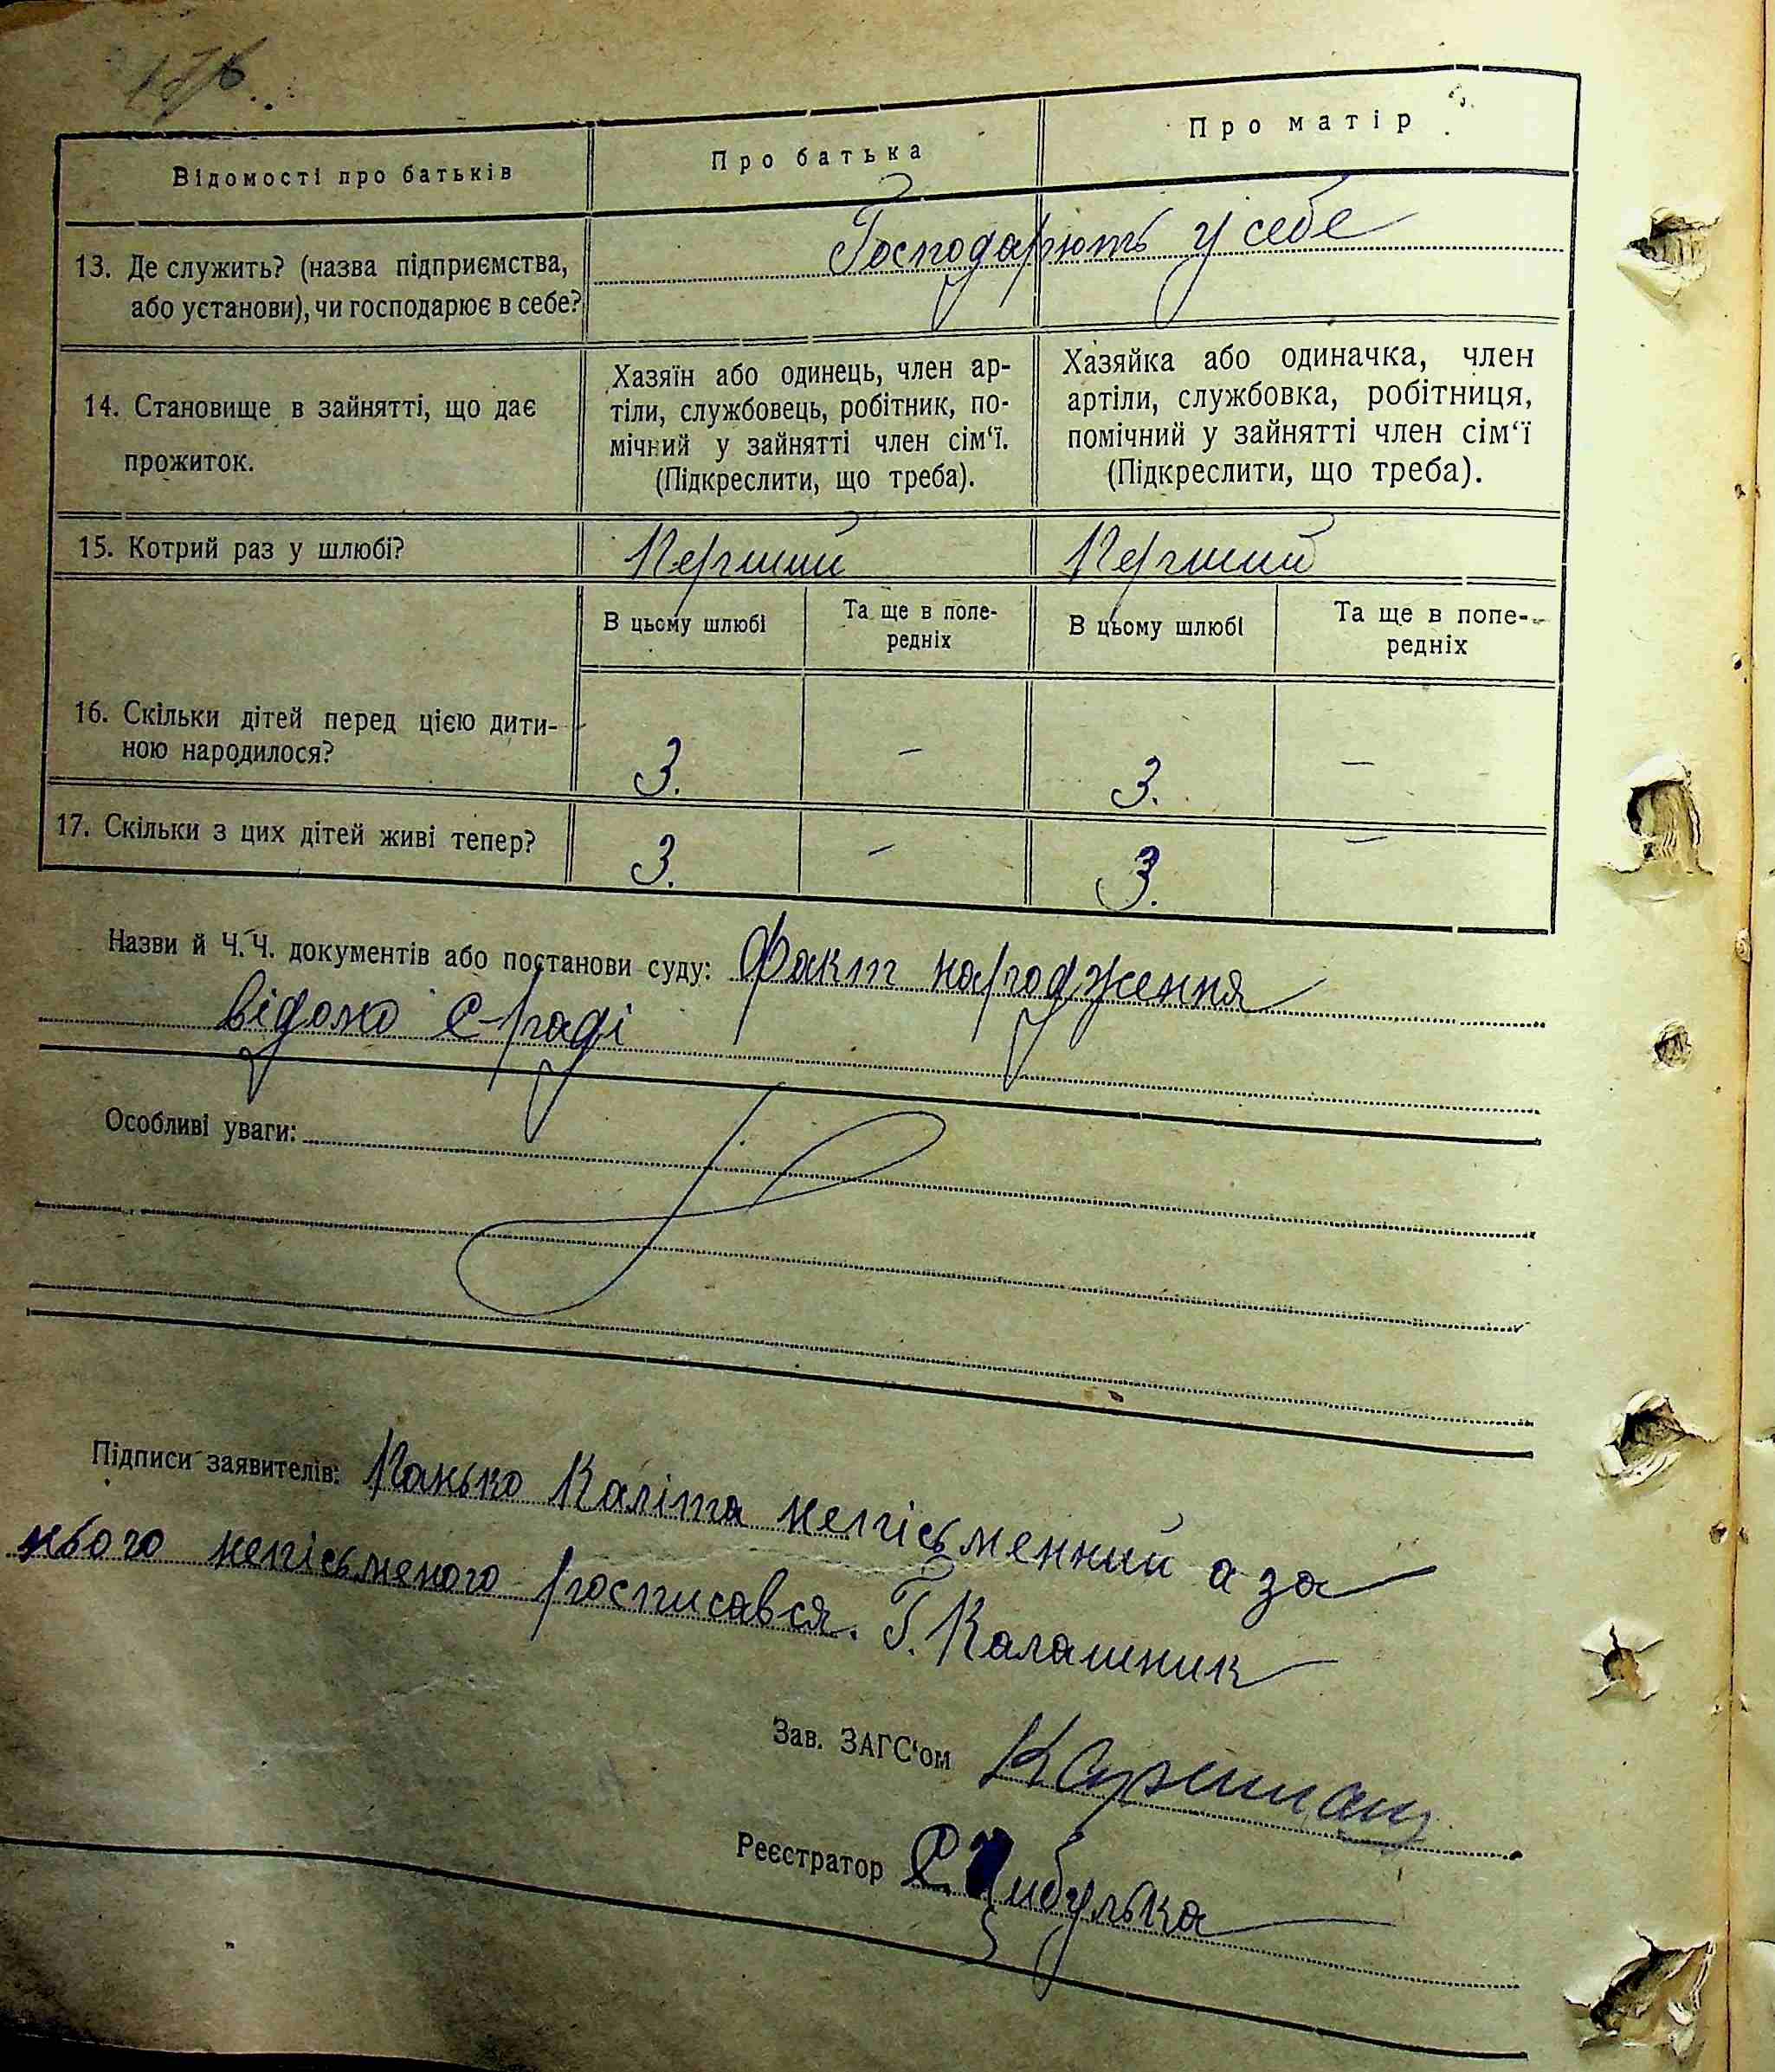 Відомості про батьків
Про батька
Про матір
13. Де служить? (назва підприємства,
або установи), чи господарює в себе?
Господарюють у себе
14. Становище в зайнятті, що дає
прожиток.
Хазяїн або одинець, член ар-
тіли, службовець, робітник, по-
мічний у зайнятті член сім‘ї.
(Підкреслити, що треба).
Хазяйка або одиначка, член
артіли, службовка, робітниця,
помічний у зайнятті член сім‘ї
(Підкреслити, що треба).
15. Котрий раз у шлюбі?
Перший
Перший
В цьому шлюбі
Та ще в попе-
редніх
В цьому шлюбі
Та ще в попе-
редніх
16. Скільки дітей перед цією дити-
ною народилося?
3. – 3. –
17. Скільки з цих дітей живі тепер?
3. – 3. –
Назви й Ч.Ч. документів або постанови суду: Факт народження
відомо с-раді
Особливі уваги:
Підписи заявителів: Панько Каліта неписьменний а за
нього неписьменого росписався. Г. Калашник
Зав. ЗАГС‘ом
Реєстратор Цибулька